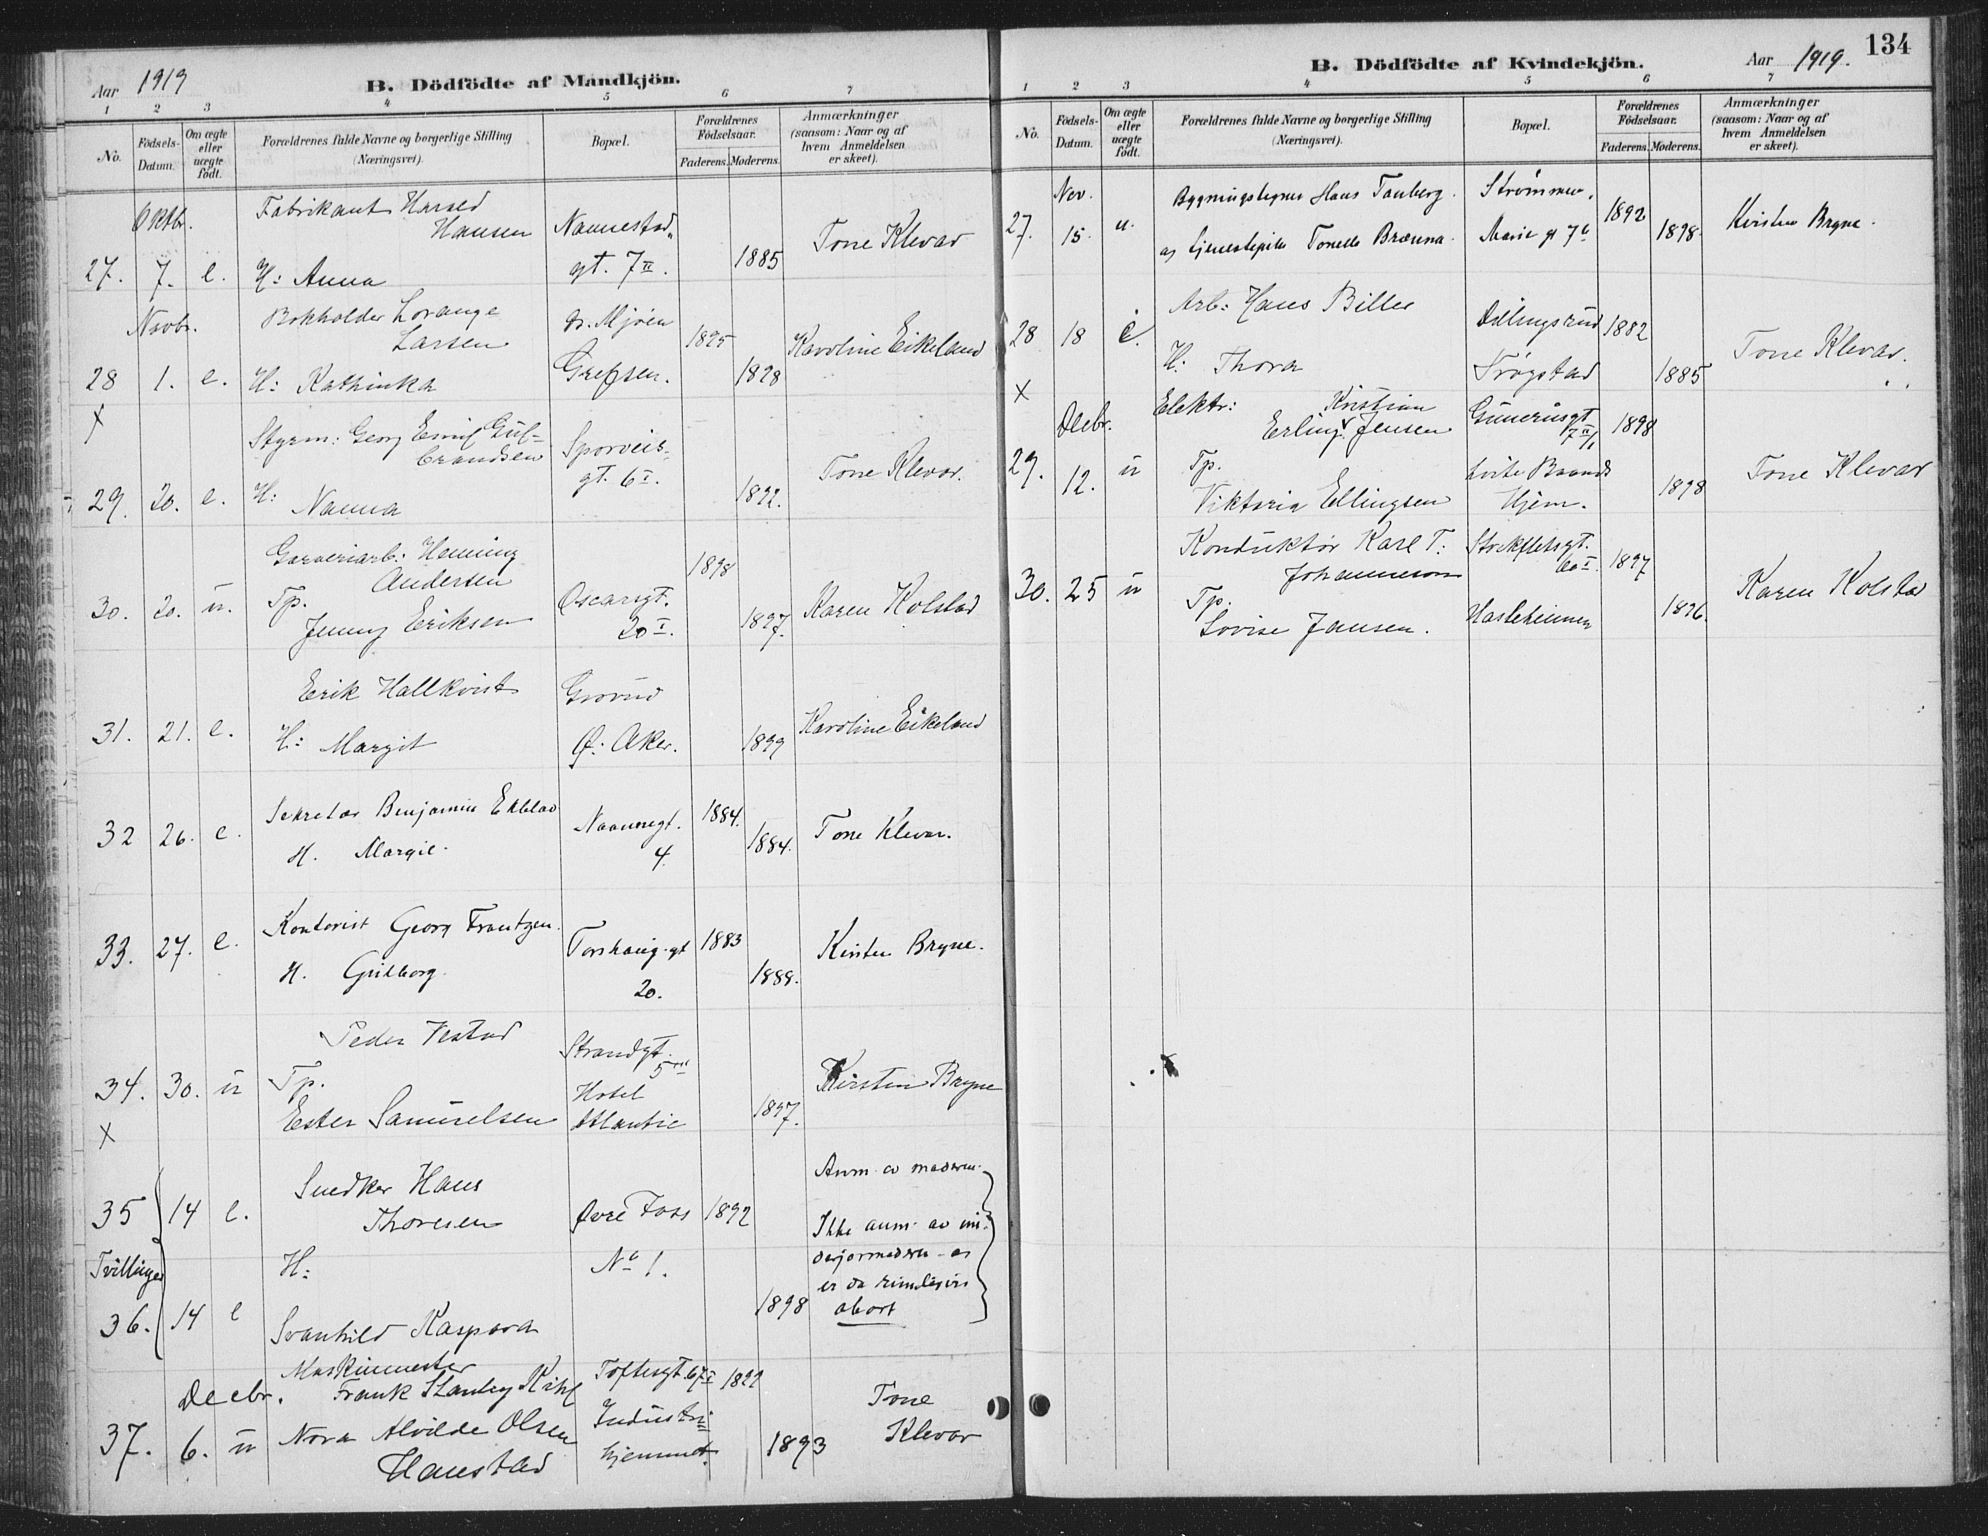 Aar 1919
B. Dödfödte af Mandkjön.
1 2 3 4 5 6 7
No.
Födsels-Datum.
Om ægte eller uægte födt.
Forældrenes fulde Navne og borgerlige Stilling (Næringsvei).
Bopæl.
Forældrenes Födselsaar.
Faderens. Moderens.
Anmærkninger (saasom: Naar og af hvem Anmeldelsen er skeet).
Oktbr.
Fabrikant Harald
Hansen
Nannestad
Tone Klevar
27. 7. e. H: Anna gt. 7 II. 1885
Novbr.
Bokholder Lorange
Larsen
Karoline Eikeland
28 1. e. H: Kathinka Grefsen.
x
Styrm: Georg Emil Gul-
brandsen
Sporveis-
gt. 6 I.
Tone Klevar.
29. 20. e. H: Nanna
Garveriarb: Henning
Andersen
1898
30. 20. u. Tp. Oscarsgt. 1897. Karen Kolstad
Jenny Eriksen 20 I.
Erik Hallkvist Grorud
31. 21. e. H: Margit Ø. Aker. 1899 Karoline Eikeland
Sekretær Benjamin Ekblad 1884.
32 26. e. H. Margit. 4. 1884. Tone Klevar.
Kontorist Georg Frantzen. 1883
33. 27. e. H. Gudborg. Torshaug.gt 20. 1888. Kirsten Bryne.
Strandgt.
34. 30. u Tp. Hotel Kirsten Bryne
x Ester Samuelsen Atlantic 1897.
Snedker Hans
Thoresen
Anm. av moderen.
35 14 e. Øvre Foss 1892
Tvillinger H: No 1.
Ikke anm. av
abort
36. 14 e Svanhild Kaspara 1898
Maskinmester
Decbr. Frank Stanley Toftesgt. 67 I
Tone
Klevar
37. 6. u Nora Alvilde Olsen Industri=
Hanestad hjemmet. 1893
134
B. Dödfödte af Kvindekjön.
Aar 1919.
1 2 3 4 5 6 7
No.
Födsels-Datum.
Om ægte eller uægte födt.
Forældrenes fulde Navne og borgerlige Stilling (Næringsvei).
Bopæl.
Forældrenes Födselsaar.
Faderens. Moderens.
Anmærkninger (saasom: Naar og af hvem Anmeldelsen er skeet).
Nov.
Hans Tanberg. Strømmen, 1892
27. 15. u. 1898. Kirsten Bryne.
Arb: Hans Biller
28 18 e. 1882
H: Thora Trøgstad 1885 Tone Klevar.
x
Elektr: Kristian
Decbr. Erling Jensen 1898
29. 12. u Tp.
Viktoria Ellingsen Hjem. 1898 Tone Klevar
Konduktør Karl T. Stockfletsgt.
Johannesson 60 I. 1897
30. 25 u Tp.
Lovise Jansen. Hasleheimen 1896. Karen Kolstad